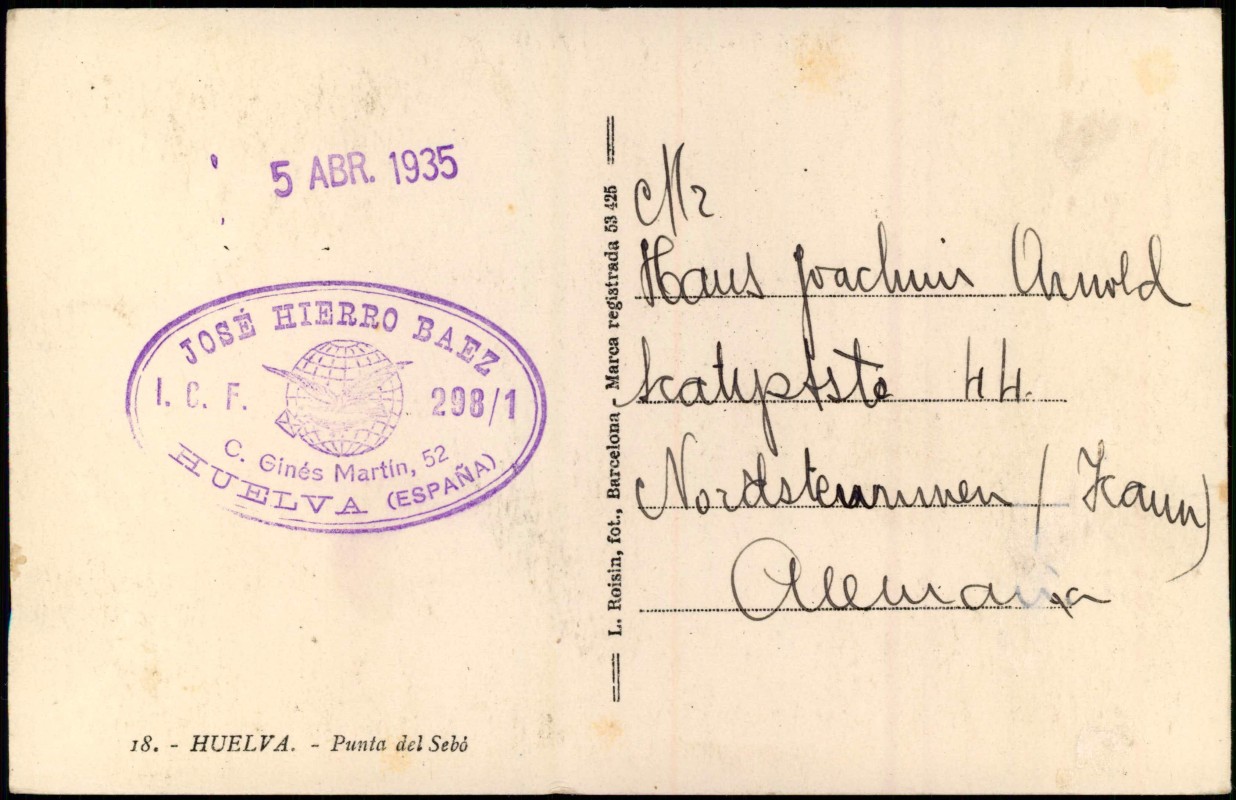 5 ABR. 1935
JOSÉ HIERRO BAEZ
I. C. F. 298/1
C. Ginés Martín, 52
HUELVA (ESPAÑA)
18. - HUELVA. - Punta del Sebó
L. Roisin, fot., Barcelona - Marca registrada 53 425
Mr
Hans Joachim Arnold
44.
Nordstemmen / Hann)
Alemania